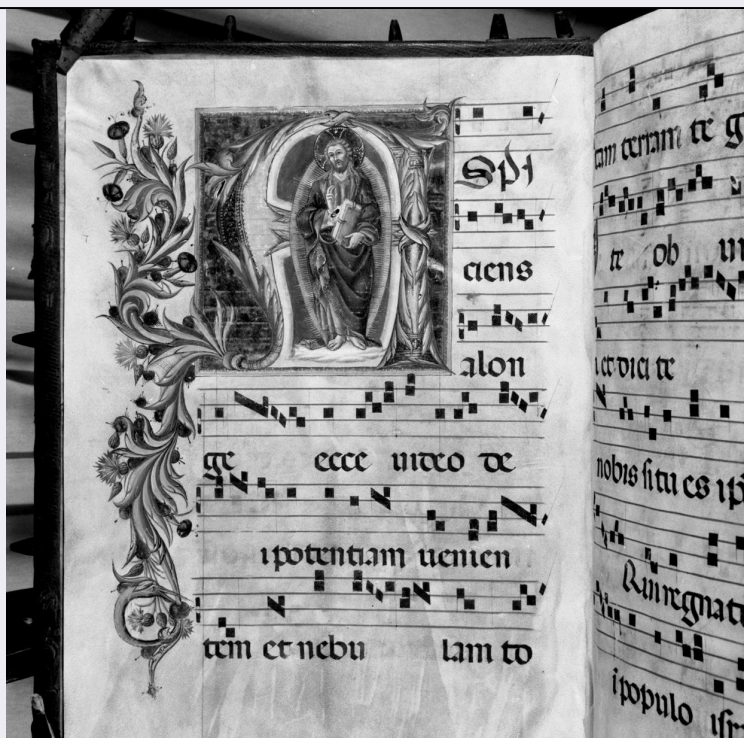 ASpi
ciens
alon
ge ecce uideo de
i potentiam uenien
tem et nebu lam to
tam terram te
te ob
et dici te
nobis si tu es ip
Qui regnat
i populo isr